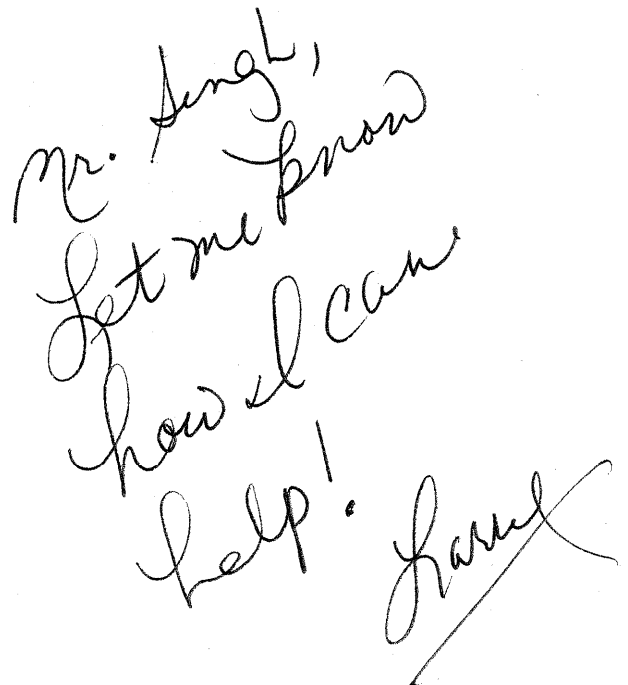 Mr. Singh,
Let me know
how I can
help!